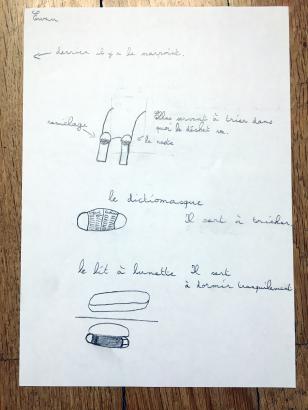 Ewen
derrier il y a le marraint.
Elles servent à trier dans
recuclage
quoi le déchet va.
le reste
le dictiomasque
Il sert à tricher
le lit à lunette Il sert
à dormir tranquilement